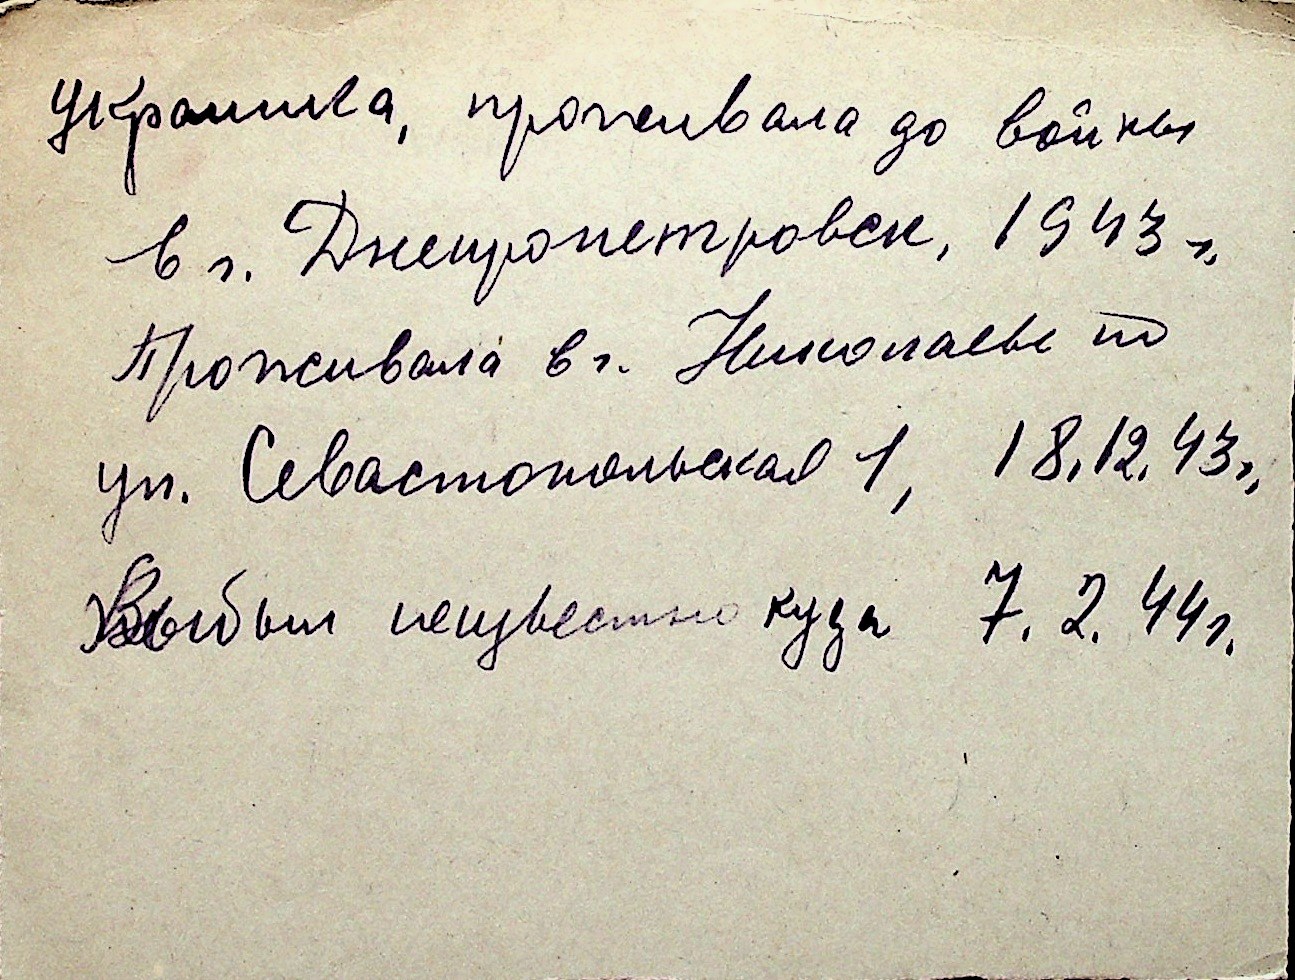 украинка, проживала до войны
в г. Днепропетровск, 1943 г.
Проживала в г. Николаеве по
ул. Севастопольская 1, 18.12.43г.,
Выбыл неизвестно куда 7.2.44г.